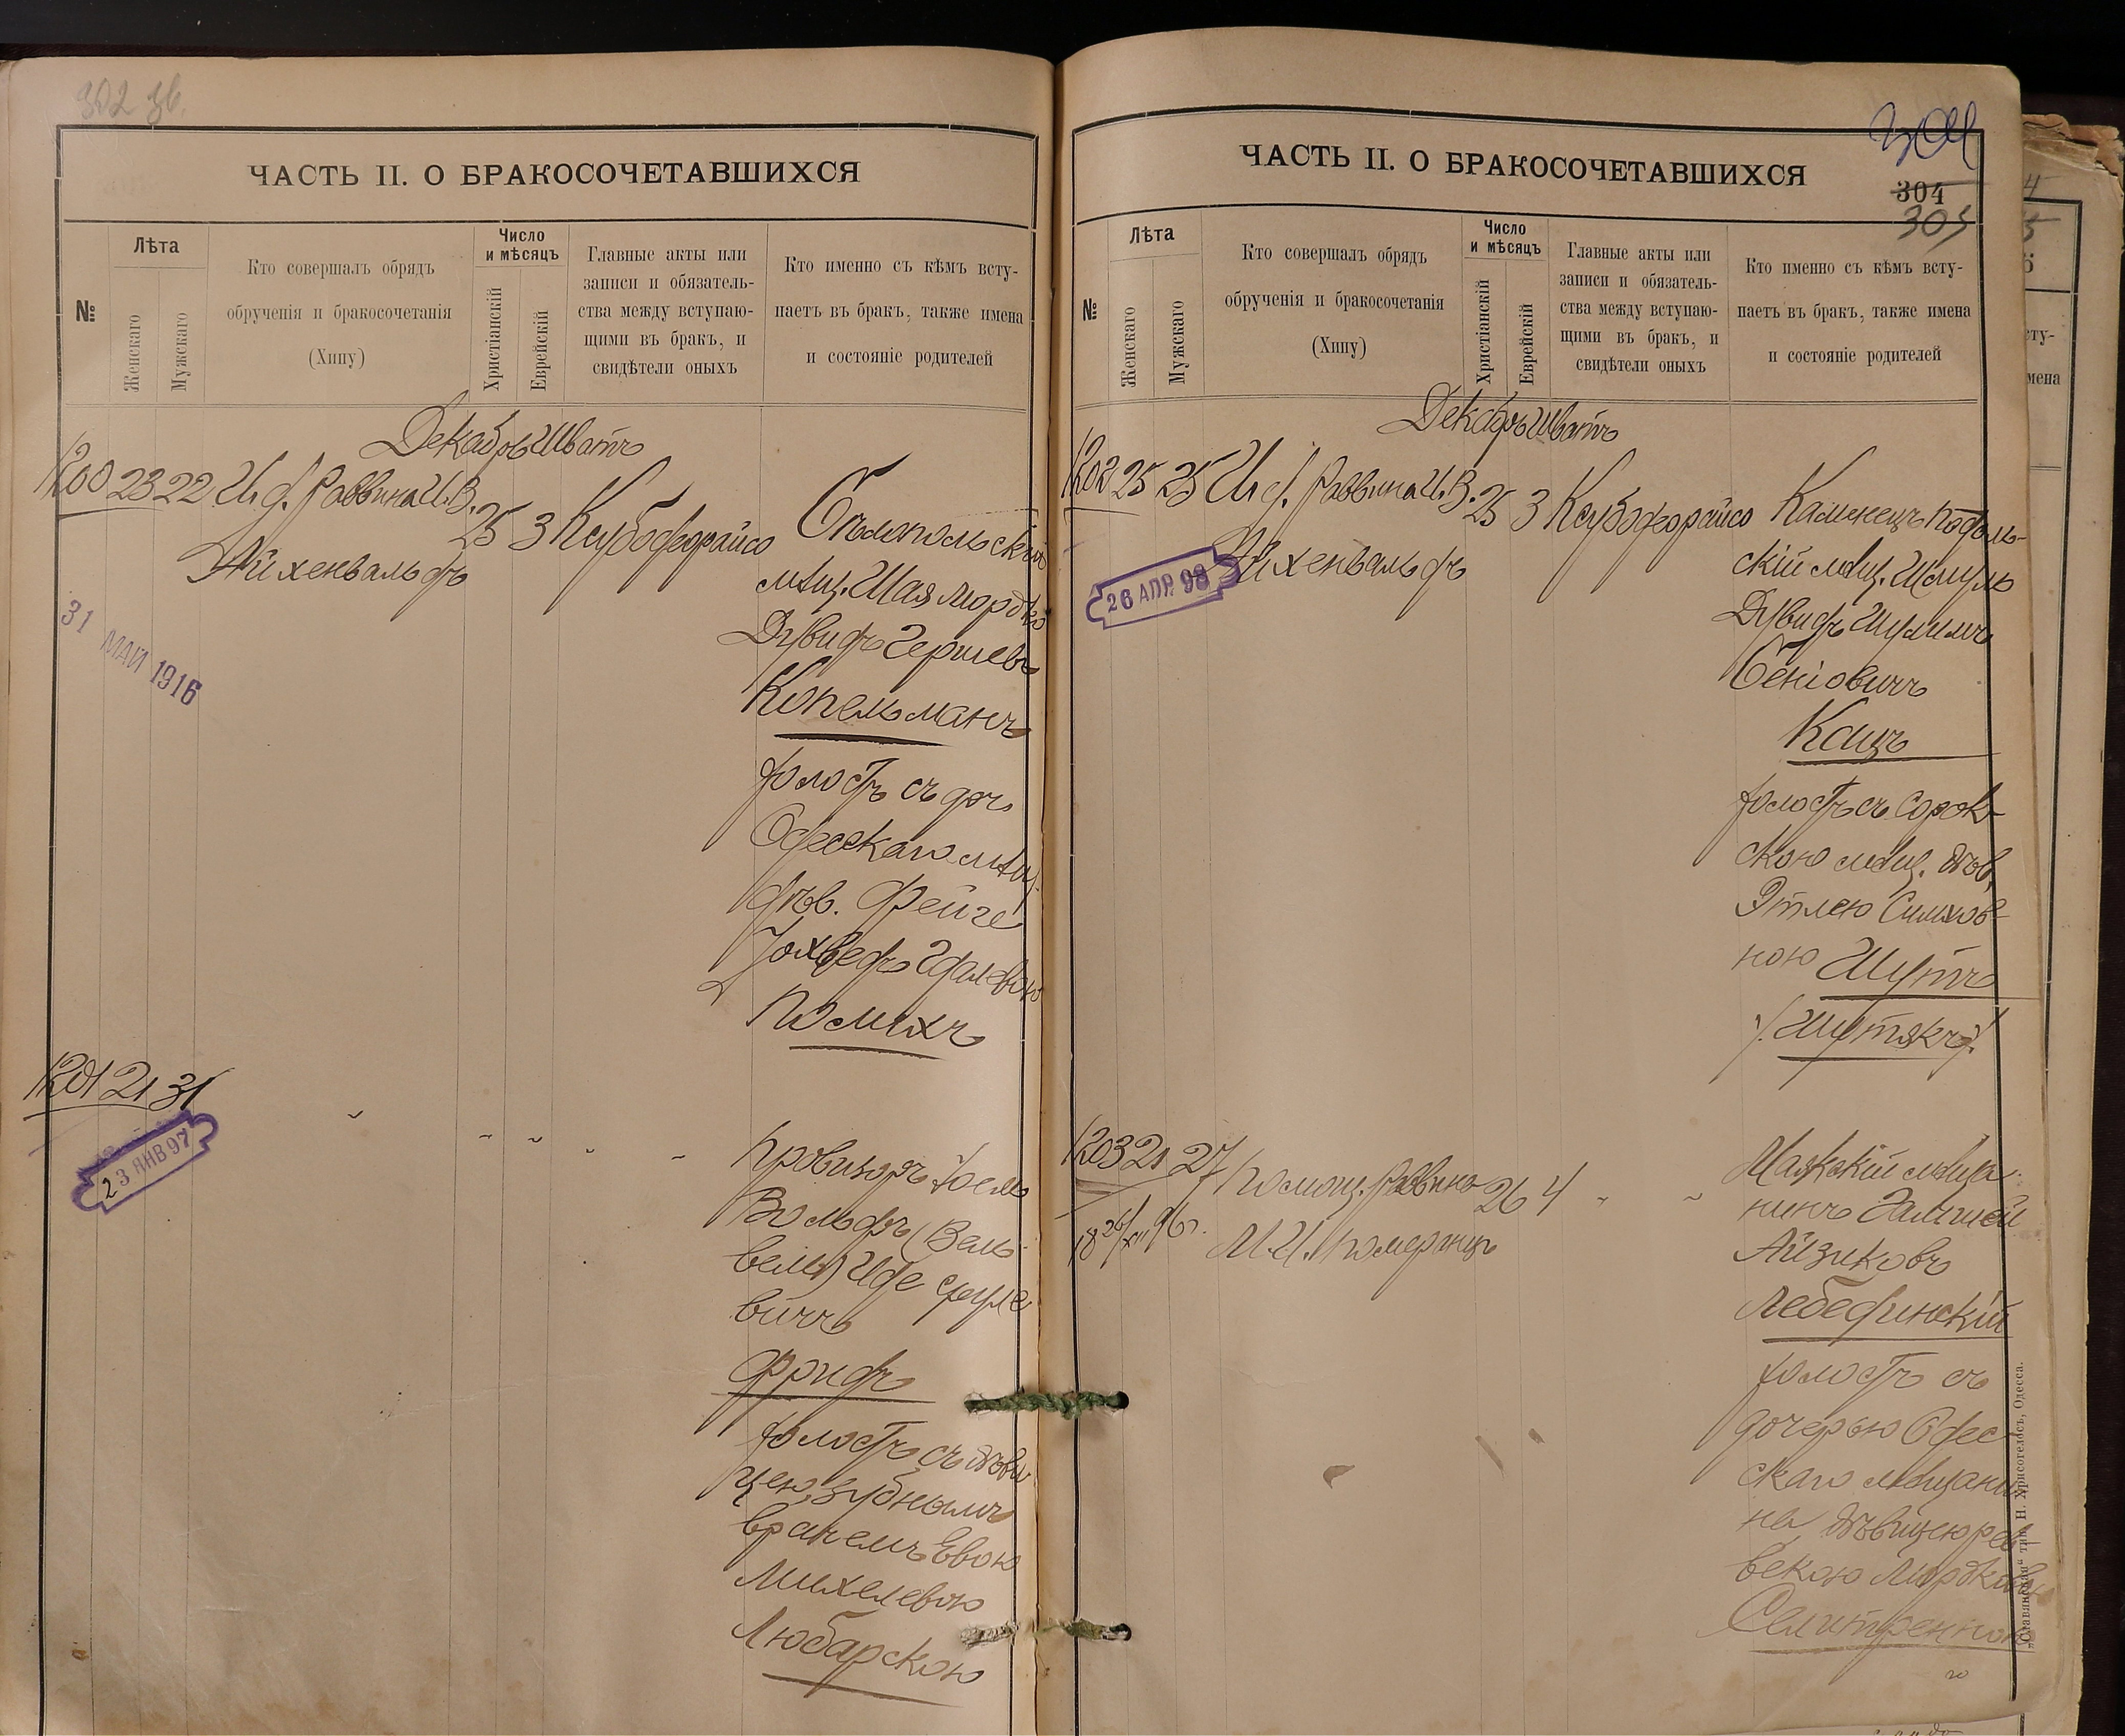 302 зв.
ЧАСТЬ II. О БРАКОСОЧЕТАВШИХСЯ
№
Лѣта
Женскаго
Мужскаго
Кто совершалъ обрядъ
обрученія и бракосочетанія
(Хипу)
Число
и мѣсяцъ
Христіанскій
Еврейскій
Главные акты или
записи и обязатель-
ства между вступаю-
щими въ бракъ, и
свидѣтели оныхъ
Кто именно съ кѣмъ всту-
паетъ въ бракъ, также имена
и состояніе родителей
Декабрь Шватъ
1200 23 22 И. д. Раввина И. В.
Айхенвальдъ
25 3 Ксубофдорайсо
31 МАЙ 1916
Ольгопольскій
мѣщ. Шая Мордко
Дувидъ Гершевъ
Копельманъ
холостъ съ доч.
Одесскаго мѣщ.
дѣв. Фейге
Іохведъ Идалевою
Помихъ
1201 21 31
23 ЯНВ 97
Провизоръ Іоель
Вольфъ (Вель-
вель) Иде Сруле
вичъ
Фридъ
холостъ съ дѣви
цею, зубнымъ
врачемъ Евою
Михелевою
Любарскою
304
305
ЧАСТЬ II. О БРАКОСОЧЕТАВШИХСЯ
№
Лѣта
Женскаго
Мужскаго
Кто совершалъ обрядъ
обрученія и бракосочетанія
(Хипу)
Число
и мѣсяцъ
Христіанскій
Еврейскій
Главные акты или
записи и обязатель-
ства между вступаю-
щими въ бракъ, и
свидѣтели оныхъ
Кто именно съ кѣмъ всту-
паетъ въ бракъ, также имена
и состояніе родителей
Декабрь Шватъ
1202 25 25 И. д. Раввина И. В.
Айхенвальдъ
25 3 Ксубофдорайсо
26 АПР. 98
Каменецъ Подоль-
скій мѣщ. Шмуль
Дувидъ Шулимъ
Сеніовичъ
Кацъ
холостъ съ Сорок-
скою мѣщ. дѣв.
Этлею Симхов-
ною Шутъ
/. Шутякъ ./
1203 21 27 Помощ. Раввина
М. И. Померанцъ
26 4
18 26/XII 96 г.
Маякскій мѣща
нинъ
Айзиковъ
Лебединскій
холостъ съ
дочерью Одес-
скаго мѣщани
на, дѣвицею Рев-
векою Мордковою
Селитренною
„Славянская“ тип. Н. Хрисогелосъ, Одесса.